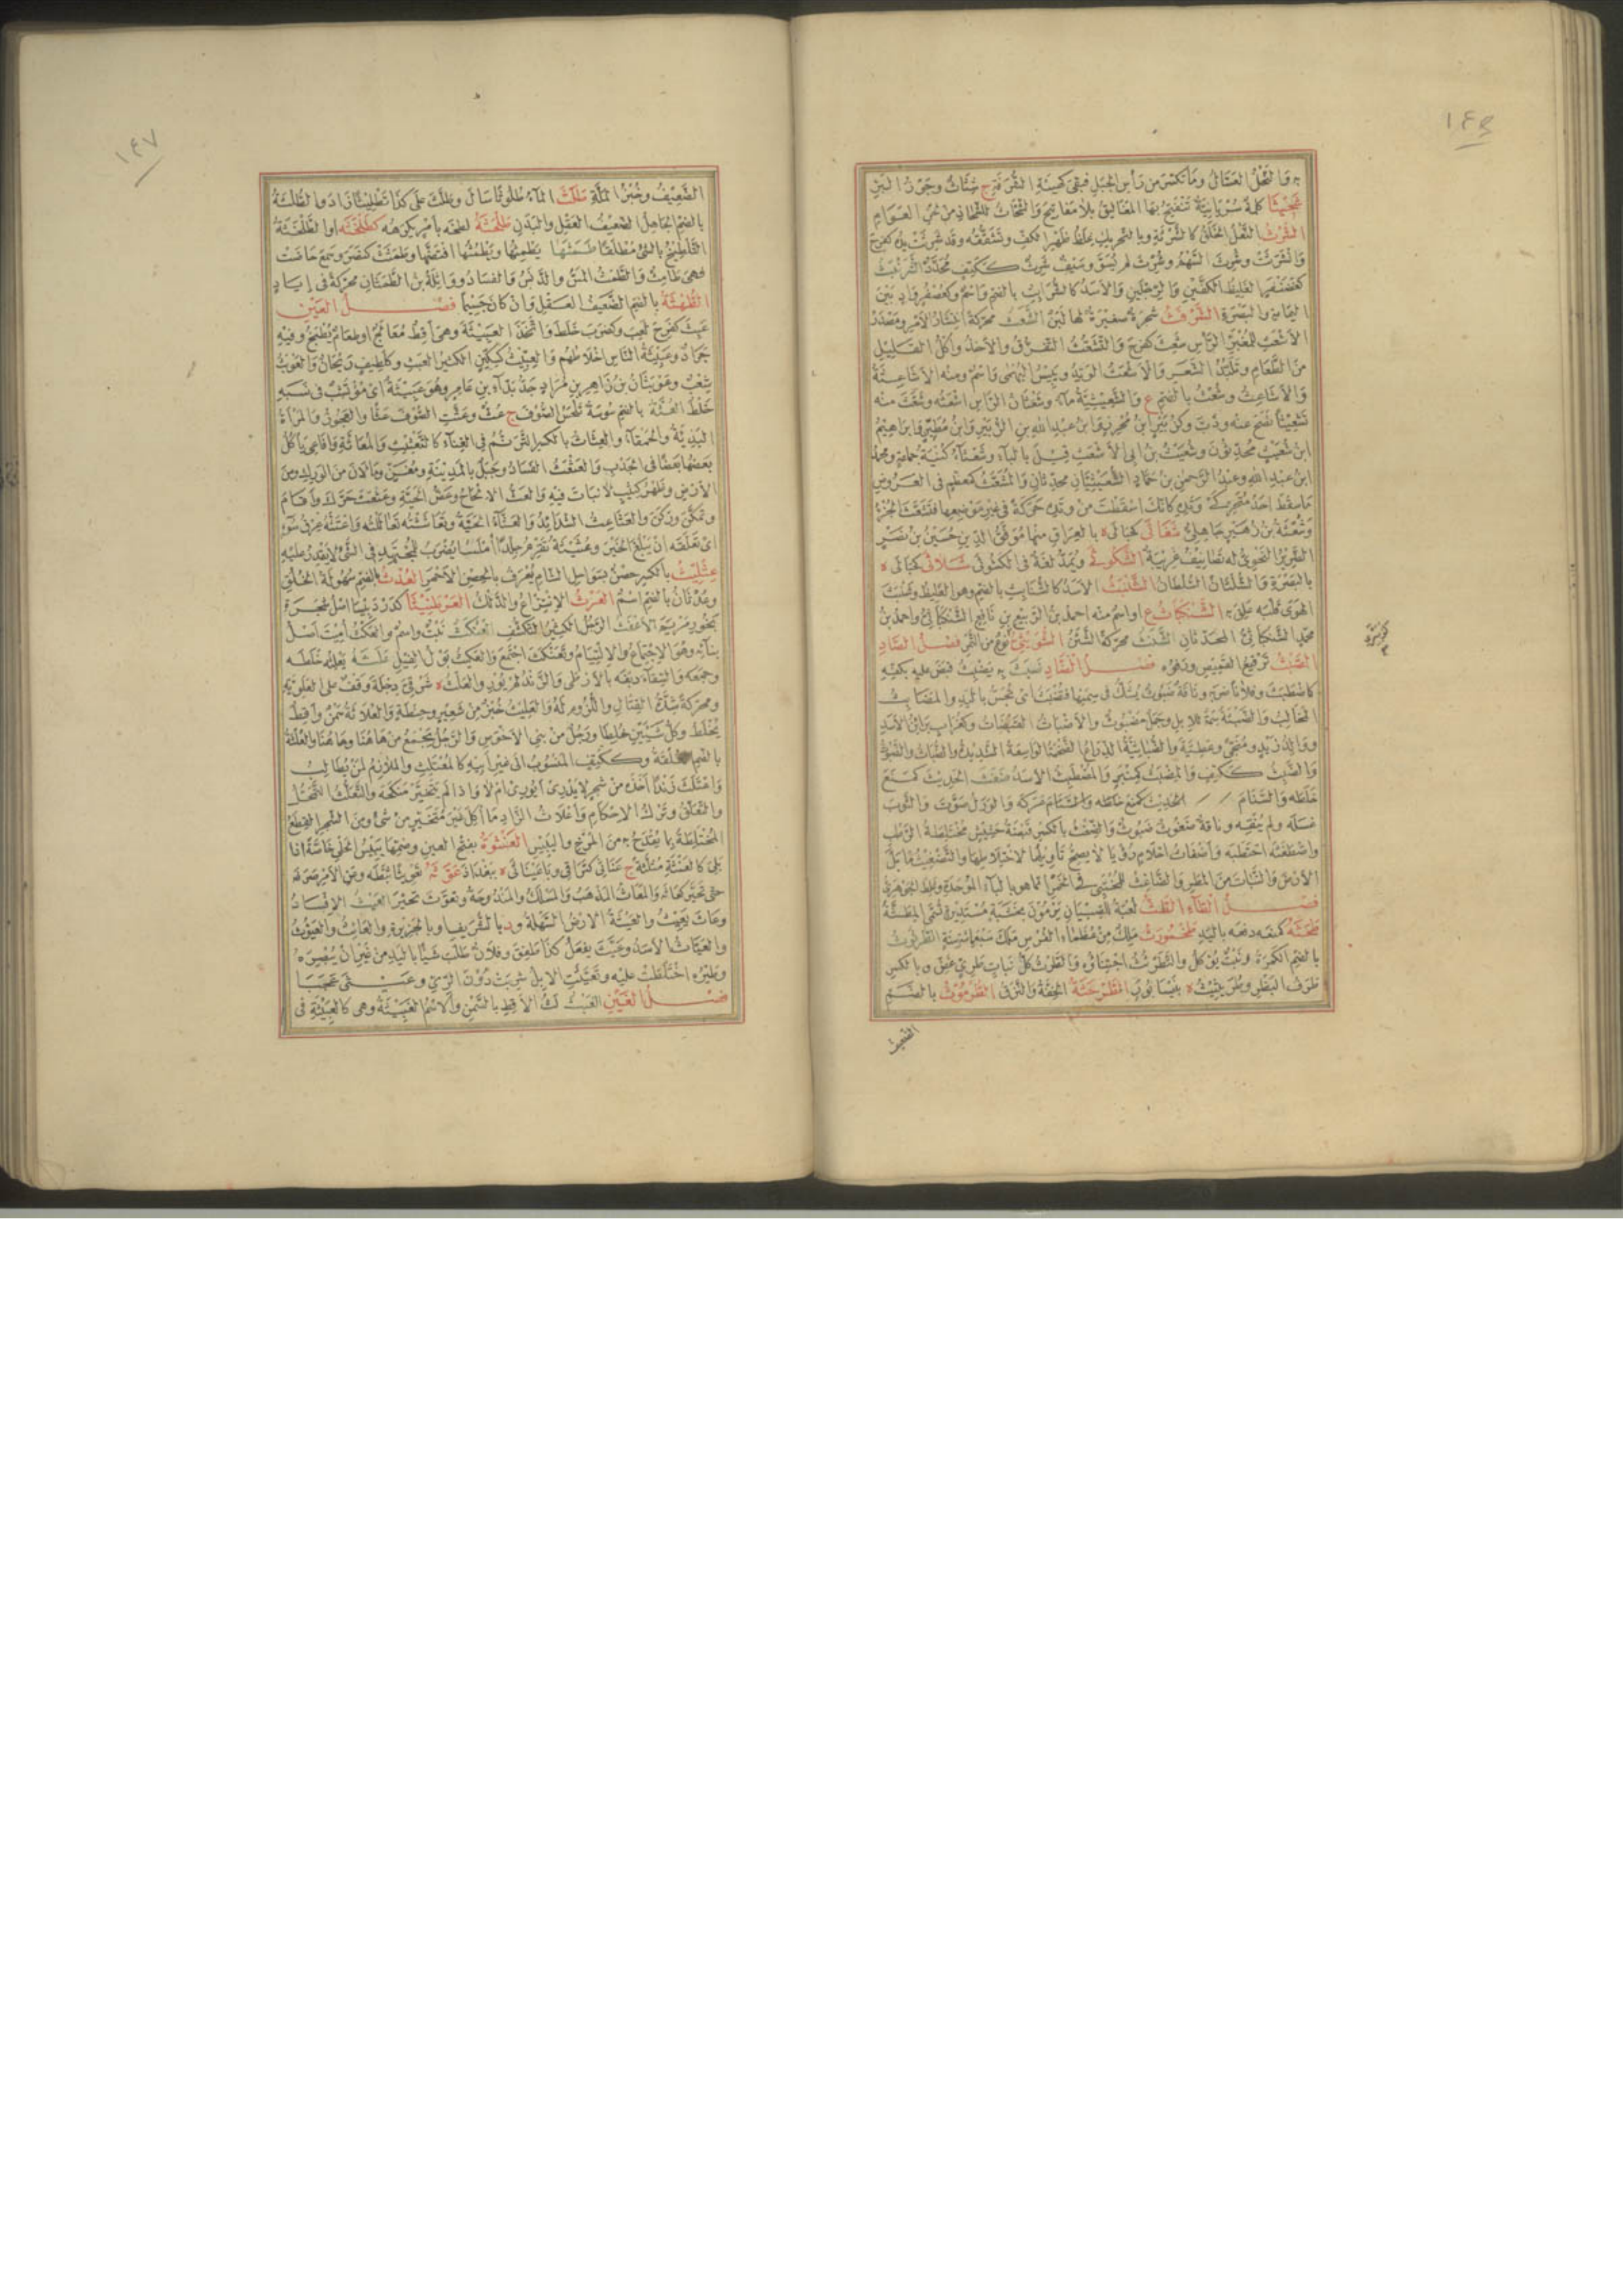 ١٤٦
به والنحل العسال وما تكسر من رأس الجبل فبقي كهيئة الشرفة ج شثاث وجوز البر
شحيثا كلمة سريانية تنفتح بها المغاليق بلا مفاتيح والشحاث للشحاذ من لحن العوام
الشرث النعل الخلق كالشرثة وبالتحريك غلظ ظهر الكف وتشققه وقد شرثت يده كفرح
كغضنفر الغليظ الكفين والرجلين والأسد كالشرابث بالضم واسم وكعصفر واد بين
اليمامة والبصرة الشرفث شجرة صغيرة لها لبن الشعث محركة انتشار الأمر ومصدر
الأشعث للمغبر الرأس شعث كفرح والتشعث التفرق والأخذ وأكل القليل
من الطعام وتلبد الشعر والأشعث الوتد ويبيس البهمى واسم ومنه الأشاعثة
والأشاعث وشعث بالضم ع والشعيثية ماء وشعثان الرأس اشعثه وشعث منه
تشعيثا نضح عنه وذب وكزبير ابن محرز وابن عبد الله بن الزبير وابن مطير وابراهيم
ابن شعيث محدثون وشعيث بن ابي الأشعث قيل بالباء وشعثاء كنية جماعة ومحمد
ابن عبد الله وعبد الرحمن بن حماد الشعيثيان محدثان والمشعث كمعظم في العروض
ما سقط احد متحركي وتده كأنك اسقطت من وتده حركة في غير موضعها فتشعث الجزء
وشعثة بن زهير جاهلي شفاثى كحبالى ة بالعراق منها موفق الدين حسين بن نصر
الضرير النحوي له تصانيف غريبة الشكوثى ويمد لغة في الكشوثى شلاثى كحبالى ة
بالبصرة والشلثان السلطان الشنبث الأسد كالشنابث بالضم وهو الغليظ وشنبث
الهوى قلبه علق به الشنكباث ع او اسم منه احمد بن الربيع بن نافع الشنكباثي واحمد بن
محمد الشنكباثي المحدثان الشنث محركة الشثن الشويثى نوع من التمر فصل الصاد
الصبث ترقيع القميص ورفوه فصل الضاد ضبث به يضبث قبض عليه بكفيه
كاضطبث وفلانا ضربه وناقة ضبوث يشك في سمنها فضبثت اى تجس باليد والمضابث
المخالب والضبثة سمة للابل وجمل مضبوث والأضباث القبضات وكغراب براثن الأسد
والضبث ككتف والمضبث كمنبر والمضطبث الأسد ضغث الحديث كمنع
خلطه والسنام عركه والورل صوت والثوب
غسله ولم ينقه وناقة ضغوث ضبوث والضغث بالكسر قبضة حشيش مختلطة الرطب
واضطغثه احتطبه وأضغاث احلام رؤيا لا يصح تأويلها لاختلاطها والتضغيث ما بل
الأرض والنبات من المطر والضاغث للمختبئ في الخمر انما هو بالباء الموحدة وغلط الجوهري
فصل الطاء الطث لعبة للصبيان يرمون بخشبة مستديرة تسمى المطثة
طحثه كمنعه دفعه باليد طخمورث ملك من عظماء الفرس ملك سبعمائة سنة الطرثوث
بالضم الكمرة ونبت يؤكل والتطرثث اجتناؤه والطرث كل نبات طري غض وبالكسر
طرف البظر وطريثيث ة بنيسابور الطرحثة الخفة والنزق الطرموث بالضم
الضعيف
١٤٧
الضعيف وخبز الملة طلث الماء طلوثا سال وطلث على كذا تطليثا زاد والطلثة
بالضم الجاهل الضعيف العقل والبدن طلحثه لطخه بأمر يكرهه كطلخثه او الطلخثة
التلطيخ بالشئ مطلقا طمثها يطمثها ويطمثها افتضها وطمثت كنصر وسمع حاضت
فهي طامث والطمث المس والدنس والفساد ووائلة بن الطمثان محركة في إياد
الطهثة بالضم الضعيف العقل وان كان جسيما فصل العين
عبث كفرح لعب وكضرب خلط واتخذ العبيثة وهي أقط معالج او طعام يطبخ وفيه
جراد وعبيثة الناس اخلاطهم والعبيث كسكين الكثير العبث وكلطيف ريحان والعوبث
شعب وعوبثان بن زاهر بن مراد جد بداء بن عامر وهو عبيثة اى مؤتشب في نسبه
خلط العثة بالضم سوسة تلحس الصوف ج عث وعثت الصوف عثا والعجوز والمرأة
البذيئة والحمقاء والعثاث بالكسر الترنم في الغناء كالتعثيث والمعاثة وافاعى يأكل
بعضها بعضا في الجدب والعثعث الفساد وجبل بالمدينة ومغن وما لان من الورك ومن
الأرض وظهر كثيب لا نبات فيه والعث الالحاح وعض الحية وعثعث حرك واقام
وتمكن وركن والعثاعث الشدائد والعثاء الحية وتعاثثته تعاللته واعتثه عرق سوء
اى تعلقه ان يبلغ الخير وعثيثة تقرم جلدا أملسا يضرب للمجتهد في الشئ لا يقدر عليه
عثليث بالكسر حصن بسواحل الشام يعرف بالحصن الأحمر العدث بالضم سهولة الخلق
وعدثان بالضم اسم العرث الانتزاع والدلك العرطنيثا كدردبيسا اصل شجرة
بخور مريم الأعفث الرجل الكثير التكشف العنكث نبت واسم والعكث أميت اصل
بنائه وهو الاجتماع والالتئام وتعنكث اجتمع والعكث بول الفيل علثه يعلثه خلطه
وجمعه والسقاء دبغه بالأرطى والزند لم يور والعلث ة شرقي دجلة وقف على العلوية
ومحركة شدة القتال واللزوم له والعليث خبز من شعير وحنطة والعلاثة سمن وأقط
يخلط وكل شيئين خلطا ورجل من بني الأحوص والرجل يجمع من هاهنا وهاهنا والعلثة
بالضم العلقة وككتف المنسوب الى غير ابيه كالمعتلث والملازم لمن يطالب
واعتلث زندا أخذه من شجر لا يدرى أيورى أم لا واذا لم يتخير منكحه والتعلث التمحل
والتعلق وترك الاحكام وأعلاث الزاد ما أكل غير متخير من شئ ومن الشجر القطع
المختلطة مما يقتدح به من المرخ واليبيس العنثوة بفتح العين وضمها يبيس الحلى خاصة اذا
بلى كالعنثة مثلثة ج عناثى كتراقى وباعيناثى ة ببغداد عوثه تعويثا ثبطه وعن الأمر صرفه
حتى تحير كعاثه والمعاث المذهب والمسلك والمندوحة وتعوث تحير العيث الافساد
وعاث يعيث والعيثة الأرض السهلة ود بالشريف او بالجزيرة والعائث والعيوث
والعياث الأسد وعيث يفعل كذا طفق وفلان طلب شيئا باليد من غير ان يبصره
وطيره اختلطت عليه وتعيثت الابل شربت دون الري وعيثى عجبا
فصل الغين الغبث لت الأقط بالسمن والاسم الغبيثة وهي كالعبيثة في